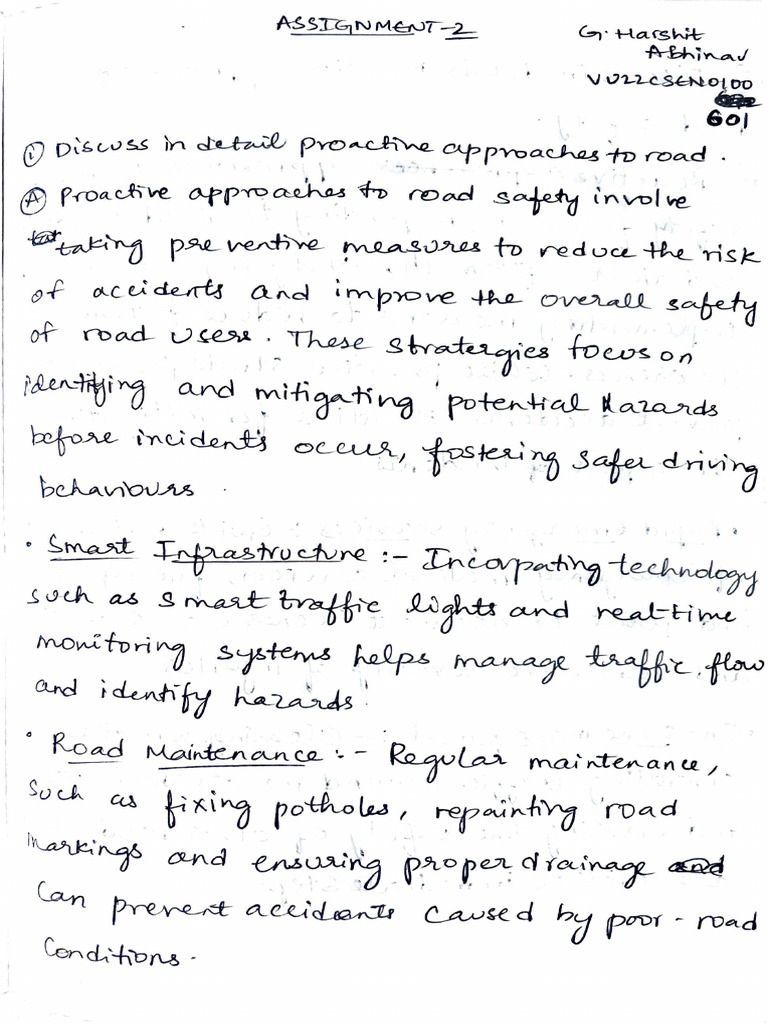 ASSIGNMENT-2
G. Harshit
Abhinav
VU22CSEN0100
601
① Discuss in detail proactive approaches to road.
Ⓐ Proactive approaches to road safety involve
taking preventive measures to reduce the risk
of accidents and improve the overall safety
of road users. These stratergies focus on
identifying and mitigating potential hazards
before incidents occur, fostering safer driving
behaviours.
• Smart Infrastructure :- Incorpating technology
such as smart traffic lights and real-time
monitoring systems helps manage traffic flow
and identify hazards.
• Road Maintenance :- Regular maintenance,
such as fixing potholes, repainting road
markings and ensuring proper drainage
can prevent accidents caused by poor-road
conditions.